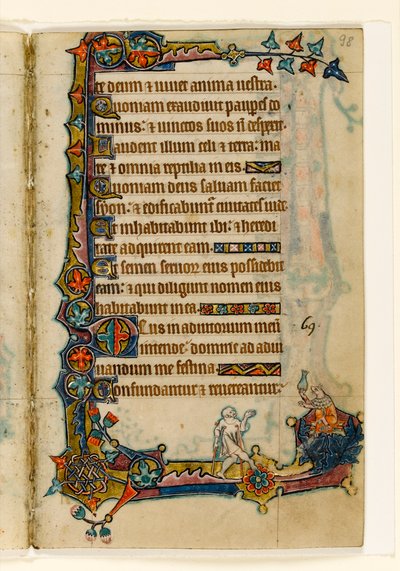 98
te deum & viuet anima uestra.
Quoniam exaudiuit paup̄es do
minus: & uinctos suos n̄ despexit.
Laudent illum celi & terra: ma
re & omnia reptilia in eis.
Quoniam deus saluam faciet
syon: & edificabunt̄ ciuitates iude
Et inhabitabunt ibi: & heredi
tate adquirent eam.
Et semen seruor̄ eius possidebit
eam: & qui diligunt nomen eius
habitabunt in ea.
Deus in adiutorium meū 69
intende: domine ad adiu
uandum me festina.
Confundantur & reuereantur: